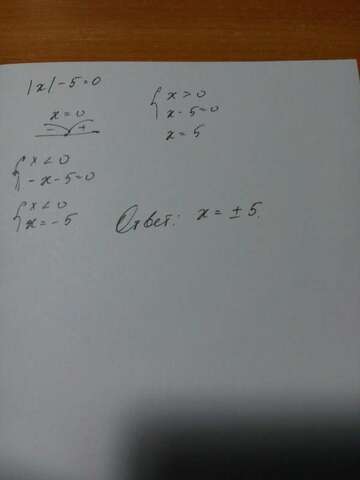 |x| - 5 = 0
x = 0
- +
{ x < 0
- x - 5 = 0
{ x < 0
x = - 5
{ x > 0
x - 5 = 0
x = 5
Ответ: x = ± 5.